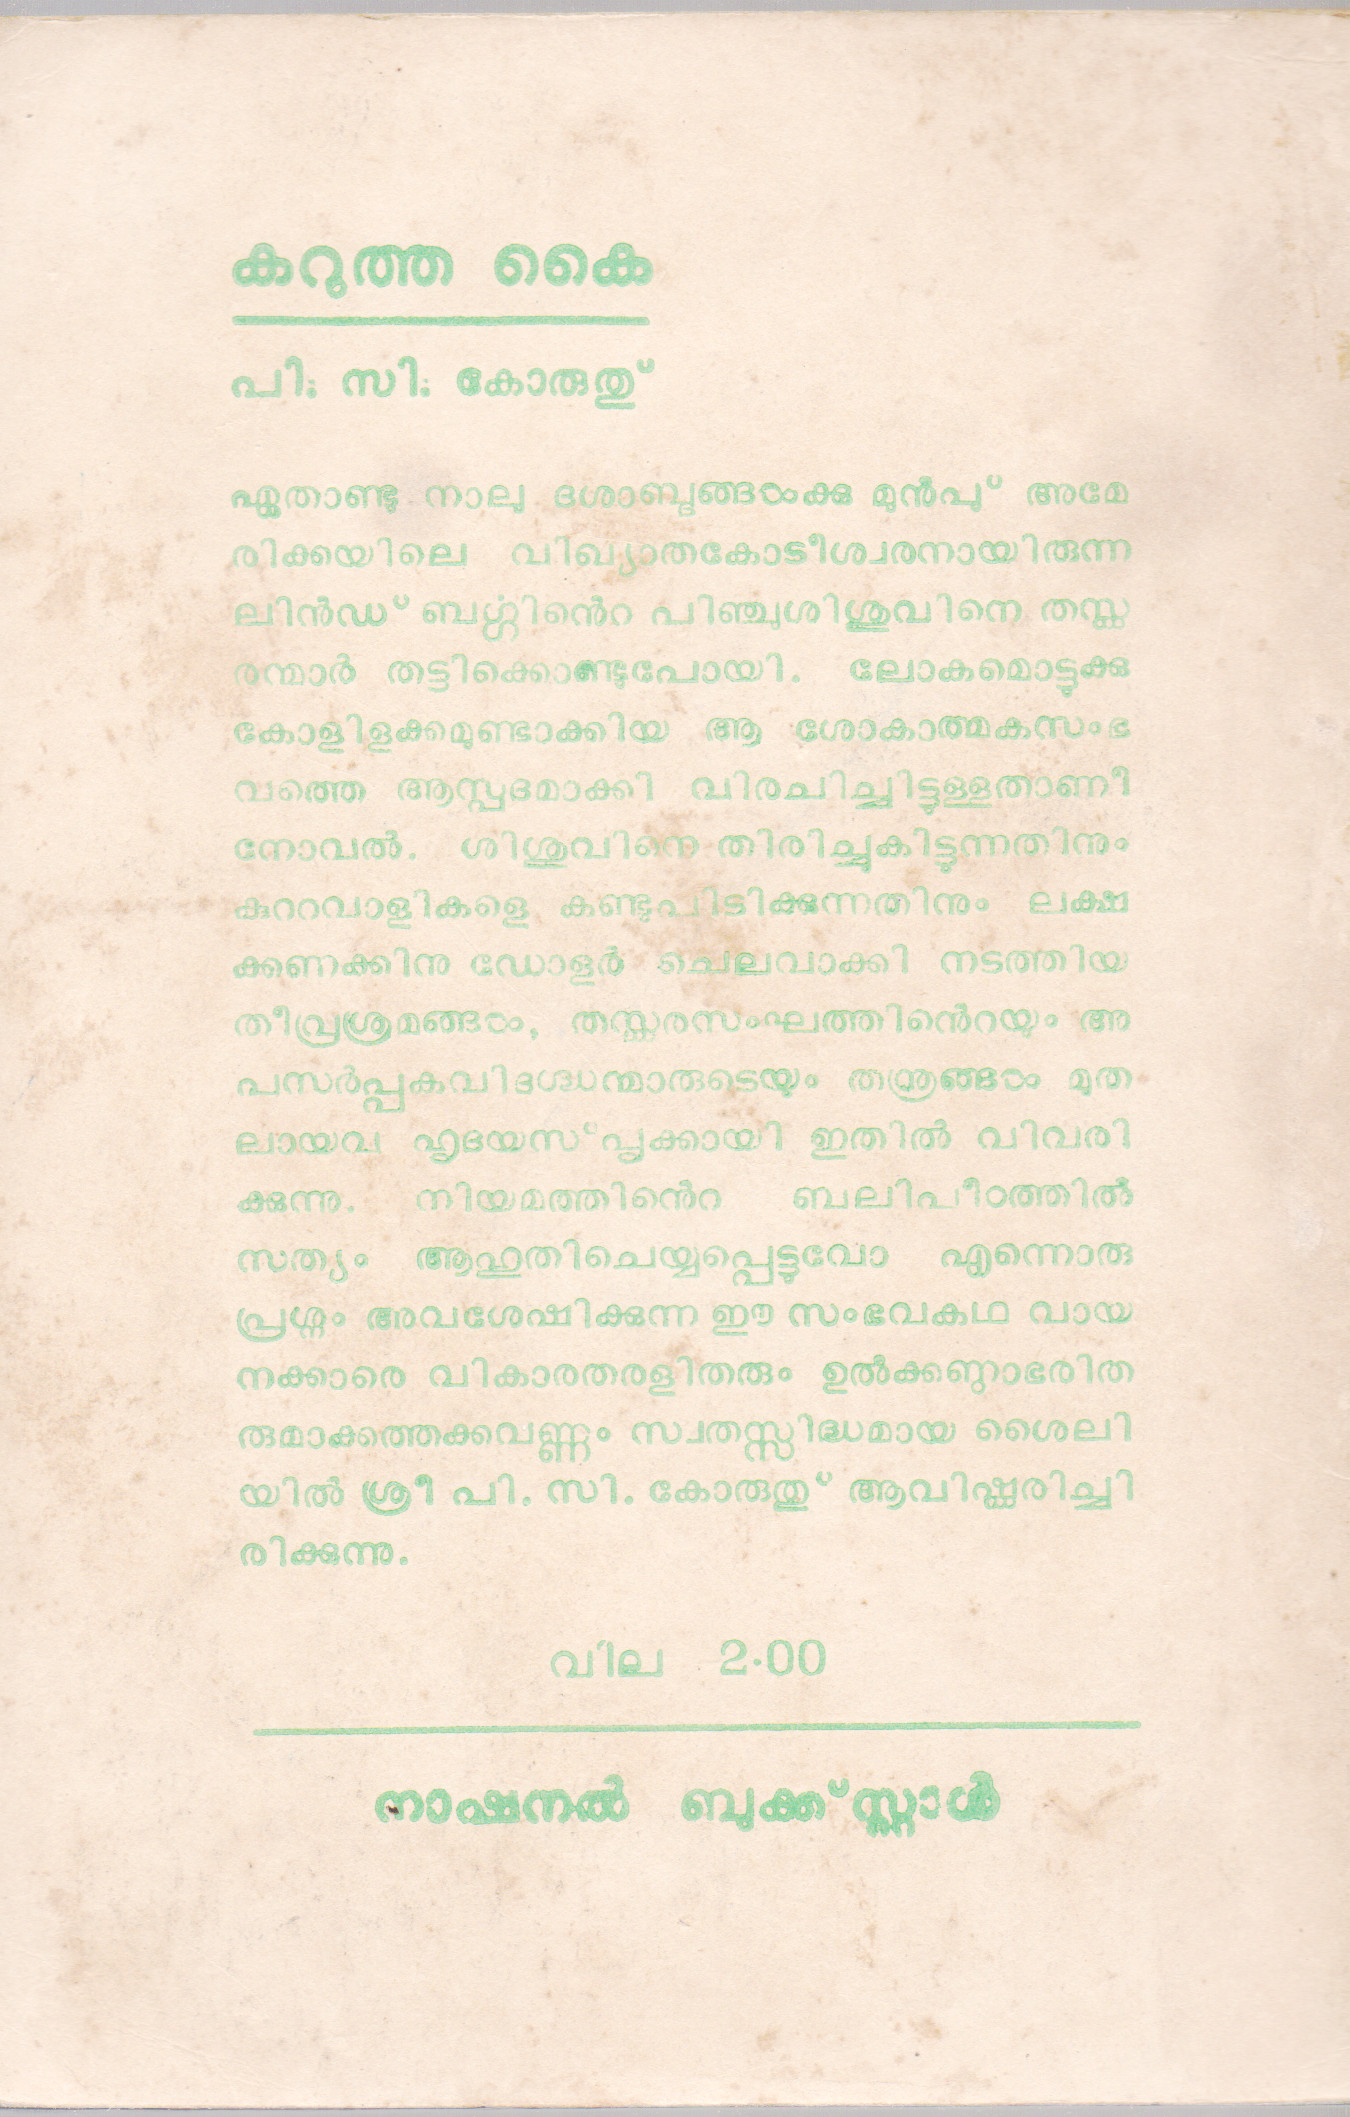 കറുത്ത കൈ
പി: സി: കോരുതു്
ഏതാണ്ടു നാലു ദശാബ്ദങ്ങൾക്കു മുൻപു് അമേ
രിക്കയിലെ വിഖ്യാതകോടീശ്വരനായിരുന്ന
ലിൻഡ് ബൎഗ്ഗിൻെറ പിഞ്ചുശിശുവിനെ തസ്ക
രന്മാർ തട്ടിക്കൊണ്ടുപോയി. ലോകമൊട്ടുക്കു
കോളിളക്കമുണ്ടാക്കിയ ആ ശോകാത്മകസംഭ
വത്തെ ആസ്പദമാക്കി വിരചിച്ചിട്ടുള്ളതാണീ
നോവൽ. ശിശുവിനെ തിരിച്ചുകിട്ടുന്നതിനും
കുററവാളികളെ കണ്ടുപിടിക്കുന്നതിനും ലക്ഷ
ക്കണക്കിനു ഡോളർ ചെലവാക്കി നടത്തിയ
തീവ്രശ്രമങ്ങൾ, തസ്കരസംഘത്തിൻെറയും അ
പസർപ്പകവിദഗ്ദ്ധന്മാരുടെയും തന്ത്രങ്ങൾ മുത
ലായവ ഹൃദയസ്പൃക്കായി ഇതിൽ വിവരി
ക്കുന്നു. നിയമത്തിൻെറ ബലിപീഠത്തിൽ
സത്യം ആഹുതിചെയ്യപ്പെട്ടുവോ എന്നൊരു
പ്രശ്നം അവശേഷിക്കുന്ന ഈ സംഭവകഥ വായ
നക്കാരെ വികാരതരളിതരും ഉൽക്കണ്ഠാഭരിത
രുമാക്കത്തക്കവണ്ണം സ്വതസ്സിദ്ധമായ ശൈലി
യിൽ ശ്രീ പി. സി. കോരുതു് ആവിഷ്കരിച്ചി
രിക്കുന്നു.
വില 2·00
നാഷനൽ ബുക്ക്സ്റ്റാൾ